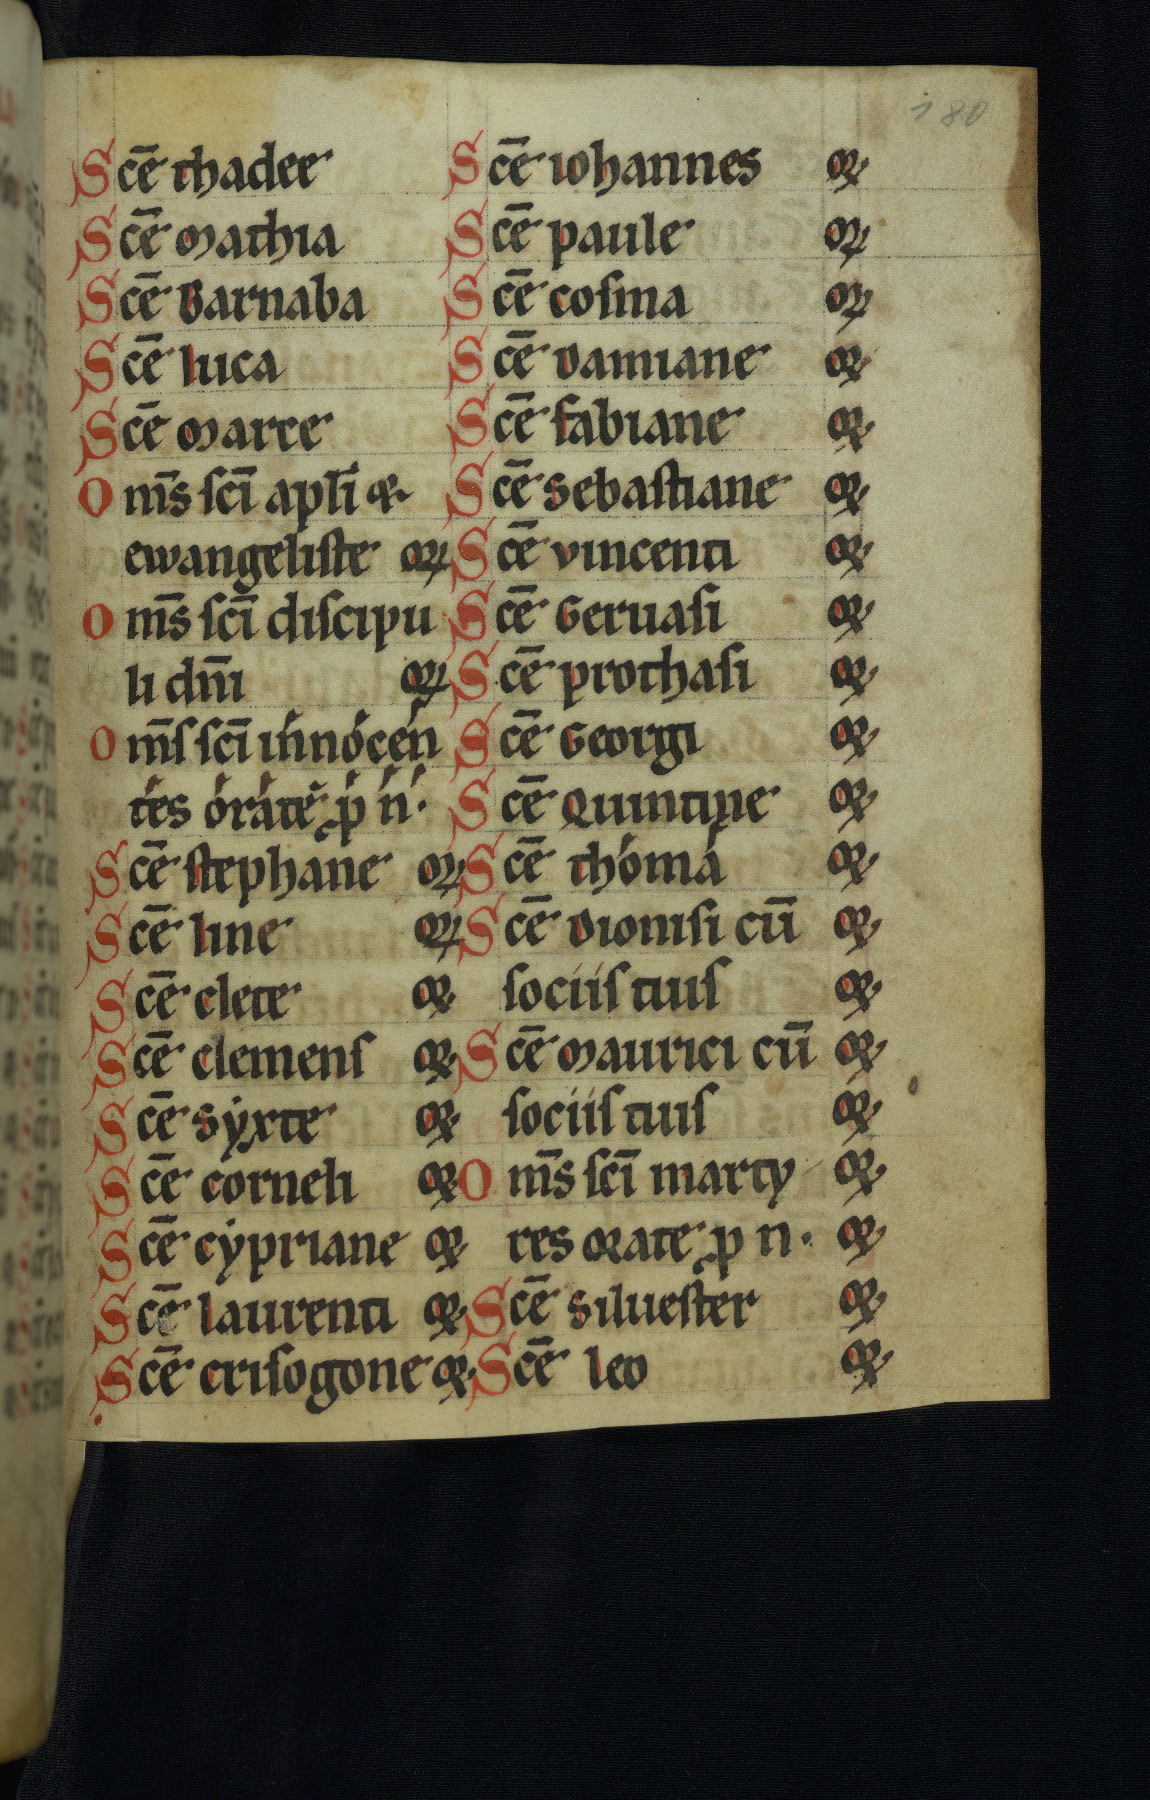 180
Sce᷎ thadee
Sc̄e mathia
Sc̄e Barnaba
Sc̄e luca
Sc̄e marce
Om̄s sc̄i apl̄i &
ewangeliste or
Om̄s sc̄i discipu
li dn̄i or
Om̄s sc̄i innocen
tes orate p n·
Sc̄e stephane or
Sc̄e line or
Sc̄e clete or
Sc̄e clemens or
Sc̄e syxte or
Sc̄e corneli or
Sc̄e cypriane or
Sc̄e laurenti or
Sc̄e crisogone or
Sc̄e iohannes or
Sc̄e paule or
Sc̄e cosma or
Sc̄e Damiane or
Sc̄e fabiane or
Sc̄e sebastiane or
Sc̄e vincenti or
Sc̄e Geruasi or
Sc̄e prothasi or
Sc̄e Georgi or
Sc̄e Quintine or
Sc̄e thoma or
Sc̄e Dionisi cū or
sociis tuis or
Sc̄e maurici cū or
sociis tuis or
Om̄s sc̄i marty or
res orate p n· or
Sc̄e siluester or
Sc̄e leo or